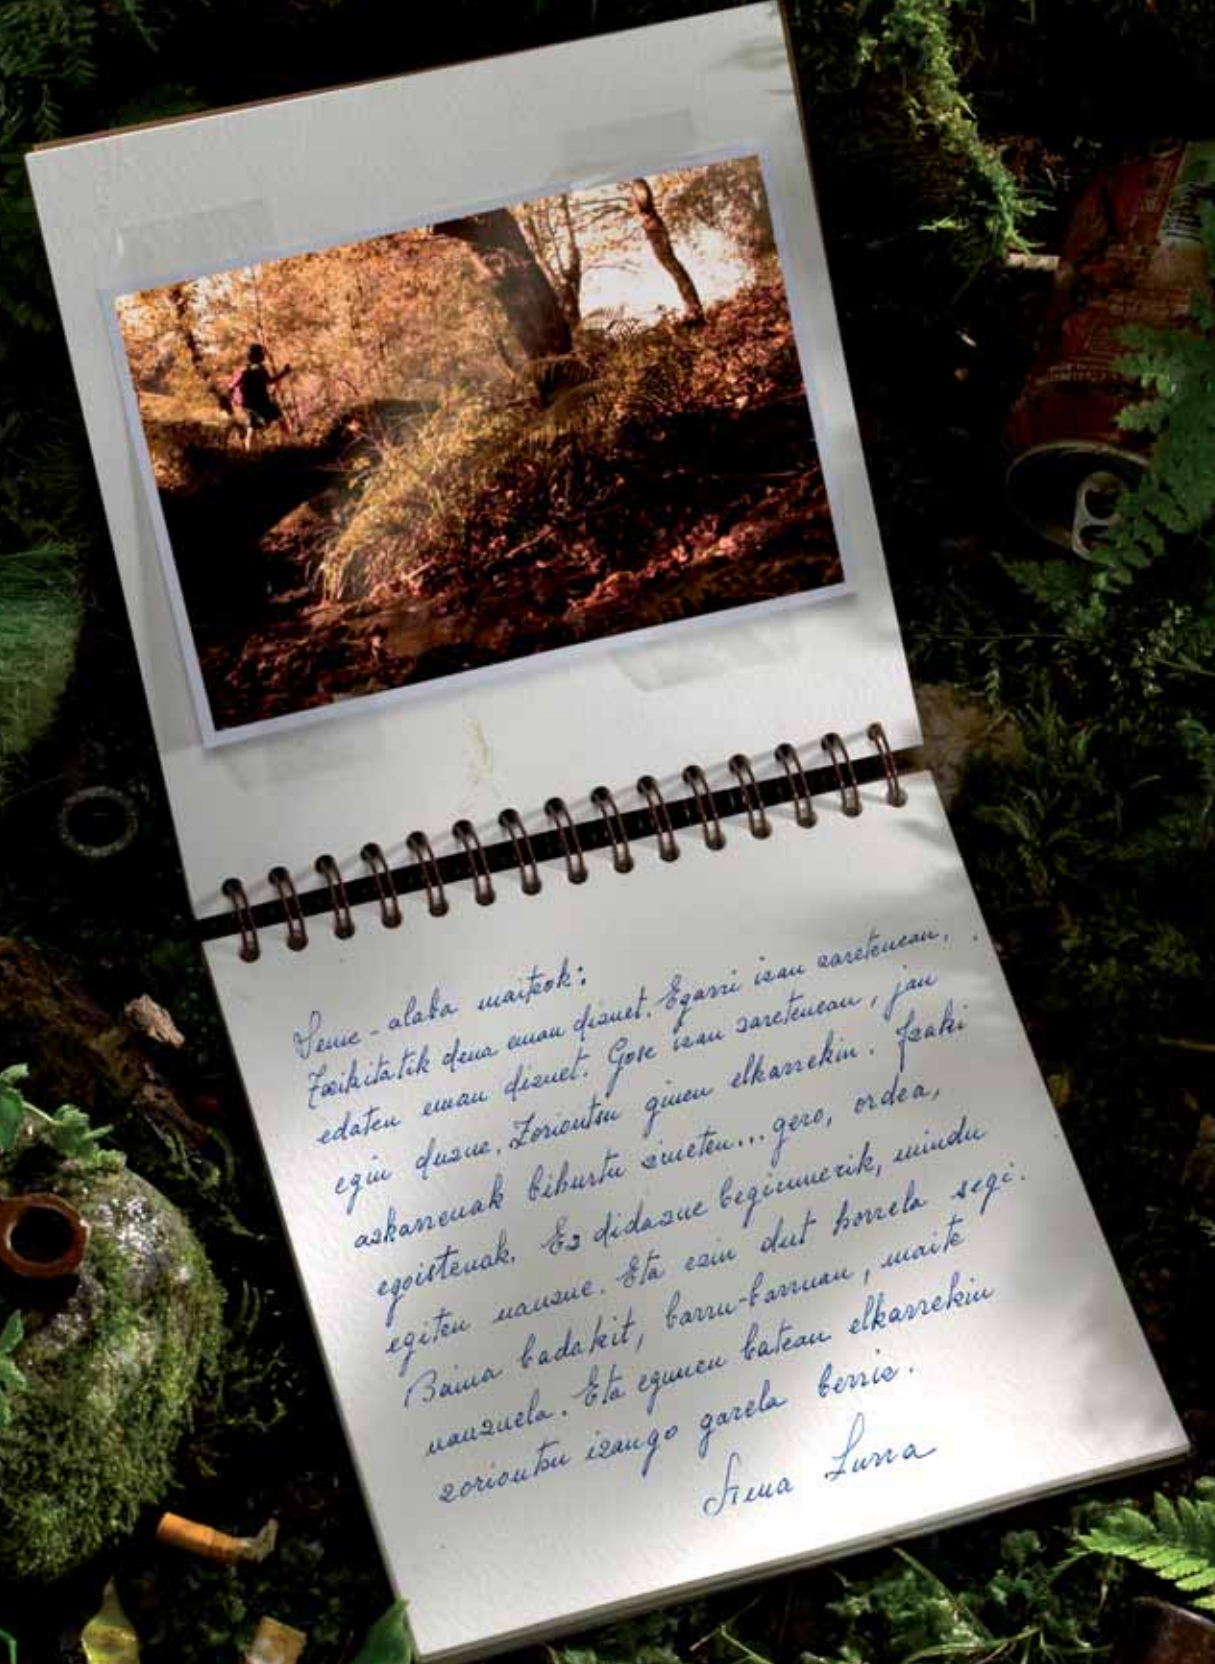 Seme-alaba maiteok:
Txikitatik dena eman dizuet. Egarri izan zaretenean,
edaten eman dizuet. Gose izan zaretenean, jan
egin duzue. Zoriontsu ginen elkarrekin. Izaki
azkarrenak bihurtu zineten... gero, ordea,
egoistenak. Ez didazue begirunerik, mindu
egiten nauzue. Eta ezin dut horrela segi.
Baina badakit, barru-barruan, maite
nauzuela. Eta egunen batean elkarrekin
zoriontsu izango garela berriz.
Ama Lurra